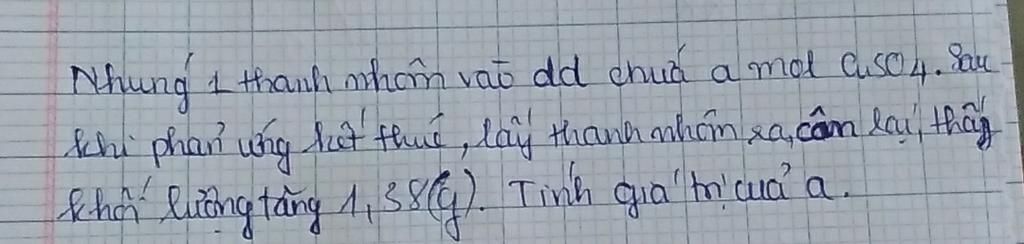 Nhúng 1 thanh nhôm vào dd chứa a mol CuSO4. Sau
khi phản ứng kết thúc, lấy thanh nhôm ra, cân lại, thấy
khối lượng tăng 1,38(g). Tính giá trị của a.